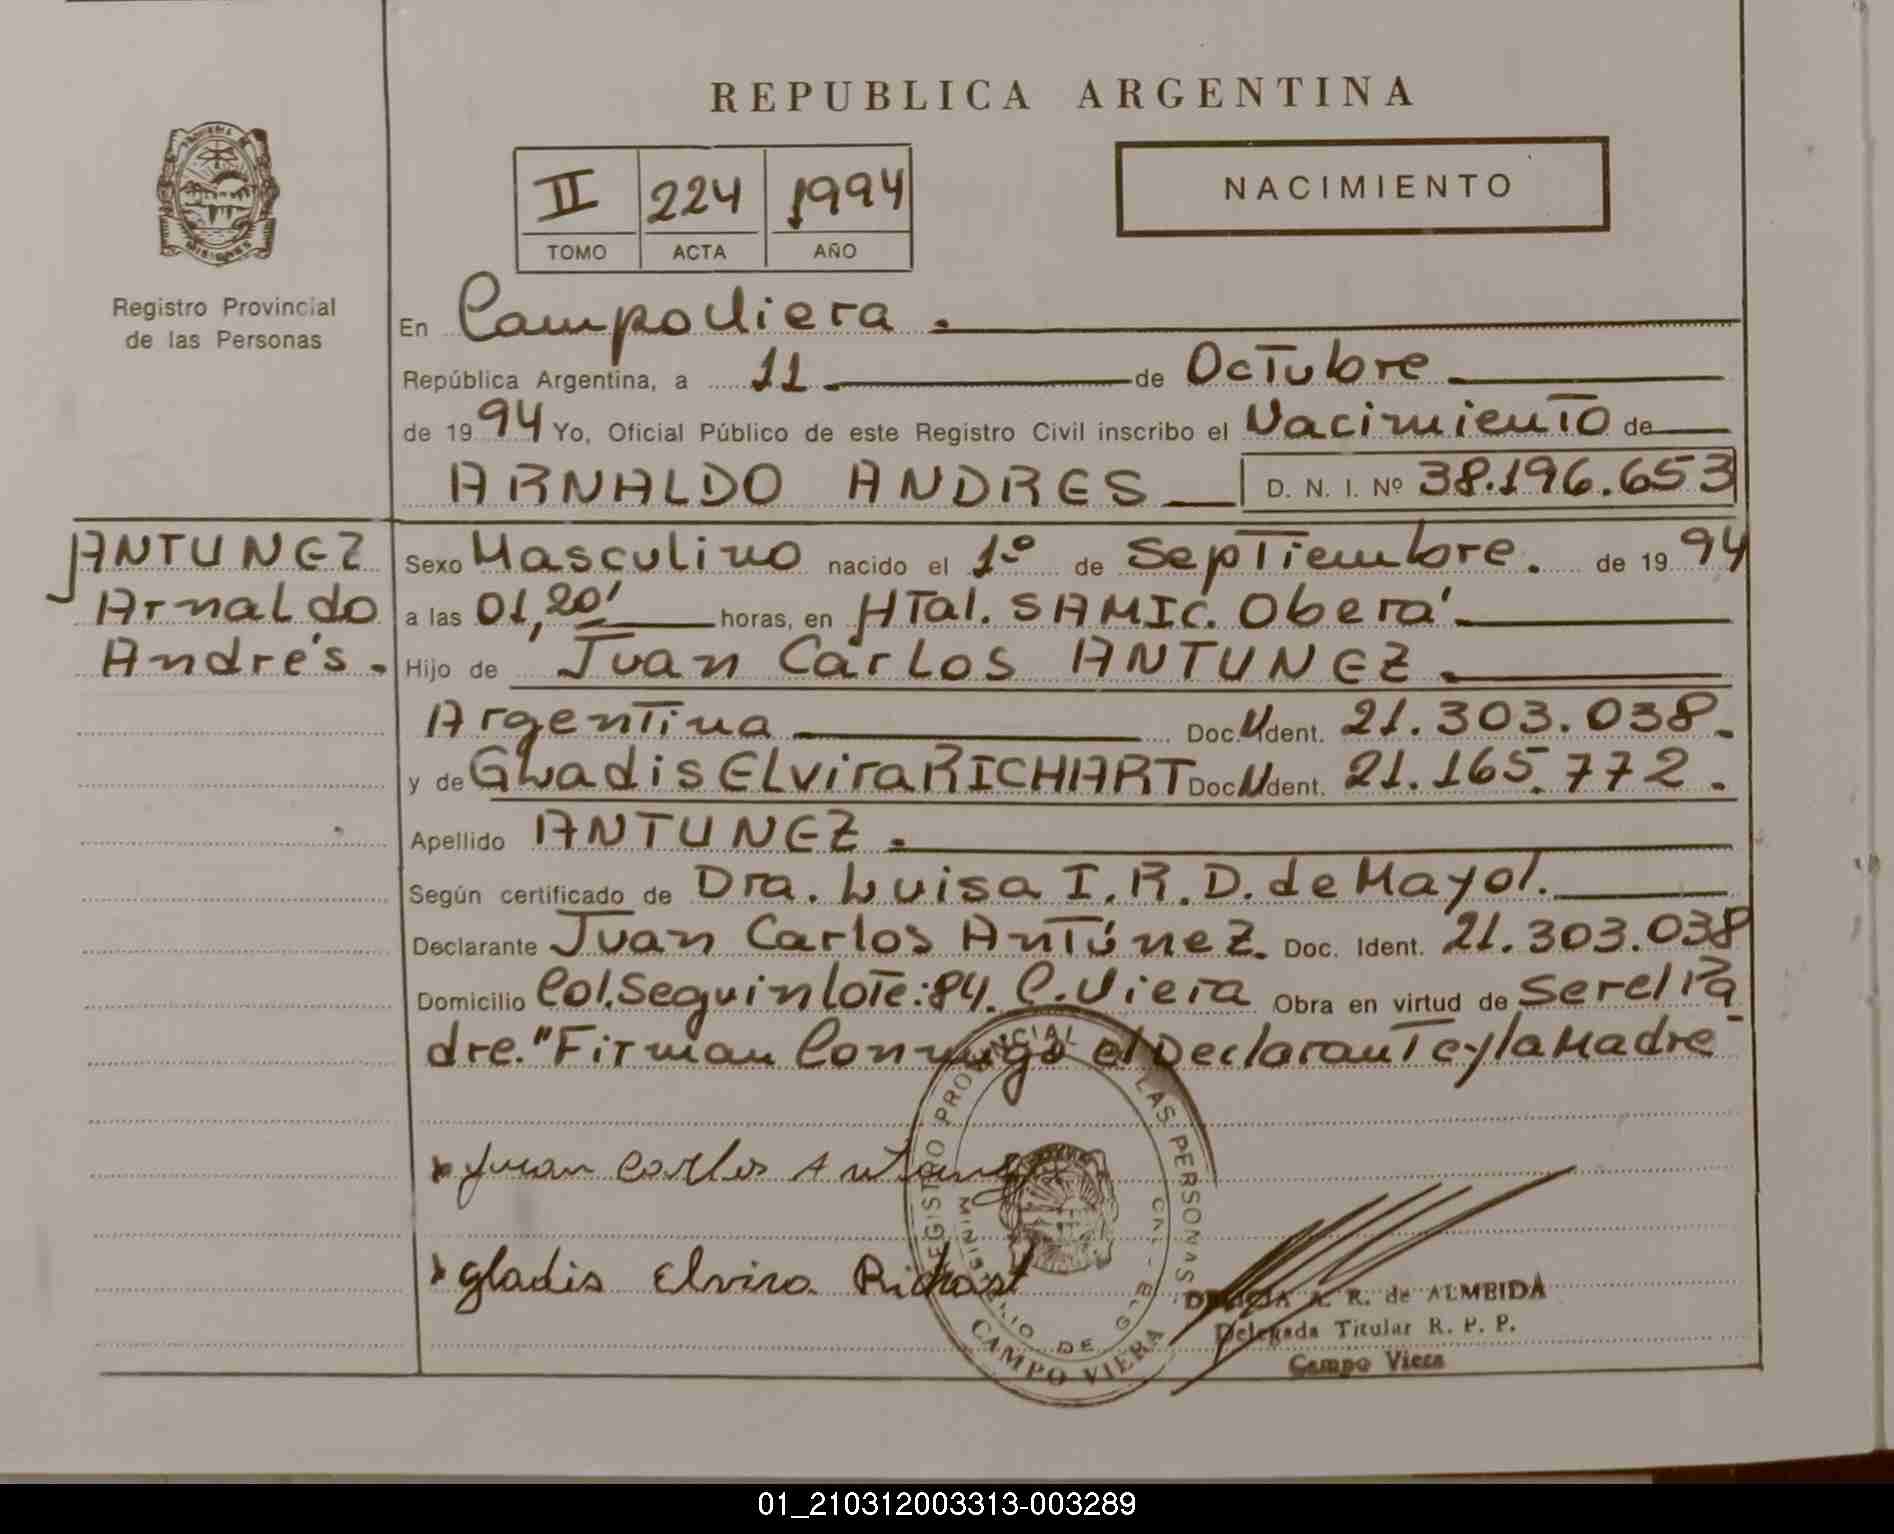 REPUBLICA ARGENTINA
NACIMIENTO
II 224 1994
TOMO ACTA AÑO
Registro Provincial
de las Personas
En Campo Viera.
República Argentina, a 11 de Octubre
de 1994 Yo, Oficial Público de este Registro Civil inscribo el Nacimiento de
ARNALDO ANDRES D. N. I. Nº 38.196.653
ANTUNEZ
Arnaldo
Andrés.
Sexo Masculino nacido el 1º de Septiembre. de 1994
a las 01,20' horas, en HTal. SAMIC. Oberá
Hijo de Juan Carlos ANTUNEZ.
Argentina Doc. U Ident. 21.303.038.
y de Gladis ELvira RICHART Doc. U Ident. 21.165.772.
Apellido ANTUNEZ.
Según certificado de Dra. Luisa I. R. D. de Mayol.
Declarante Juan Carlos Antúnez. Doc. Ident. 21.303.038
Domicilio Col. Seguin lote: 84. C. Viera Obra en virtud de Ser el Pa
dre. "Firman Conmigo el Declarante y la Madre-
Juan Carlos Antunez
Gladis Elvira Richart
REGISTRO PROVINCIAL LAS PERSONAS
MINISTERIO DE GOB
CAMPO VIERA
A. R. de ALMEIDA
Delegada Titular R. P. P.
Campo Viera
01_210312003313-003289